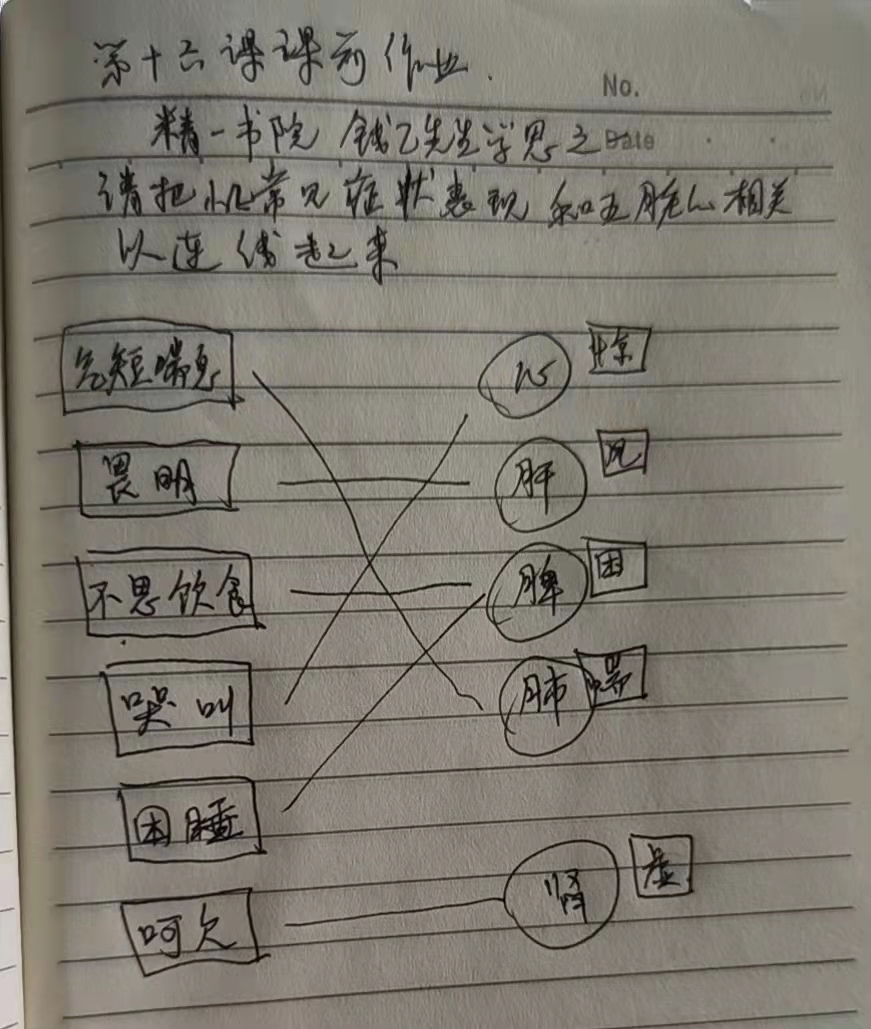 第十六课课前作业.
No.
精一书院 钱乙先生学思之
Date
请把小儿常见症状表现和五脏心相关
以连线起来
气短喘息
心
惊
畏明
肝
风
不思饮食
脾
困
哭叫
肺
喘
困睡
呵欠
肾
虚